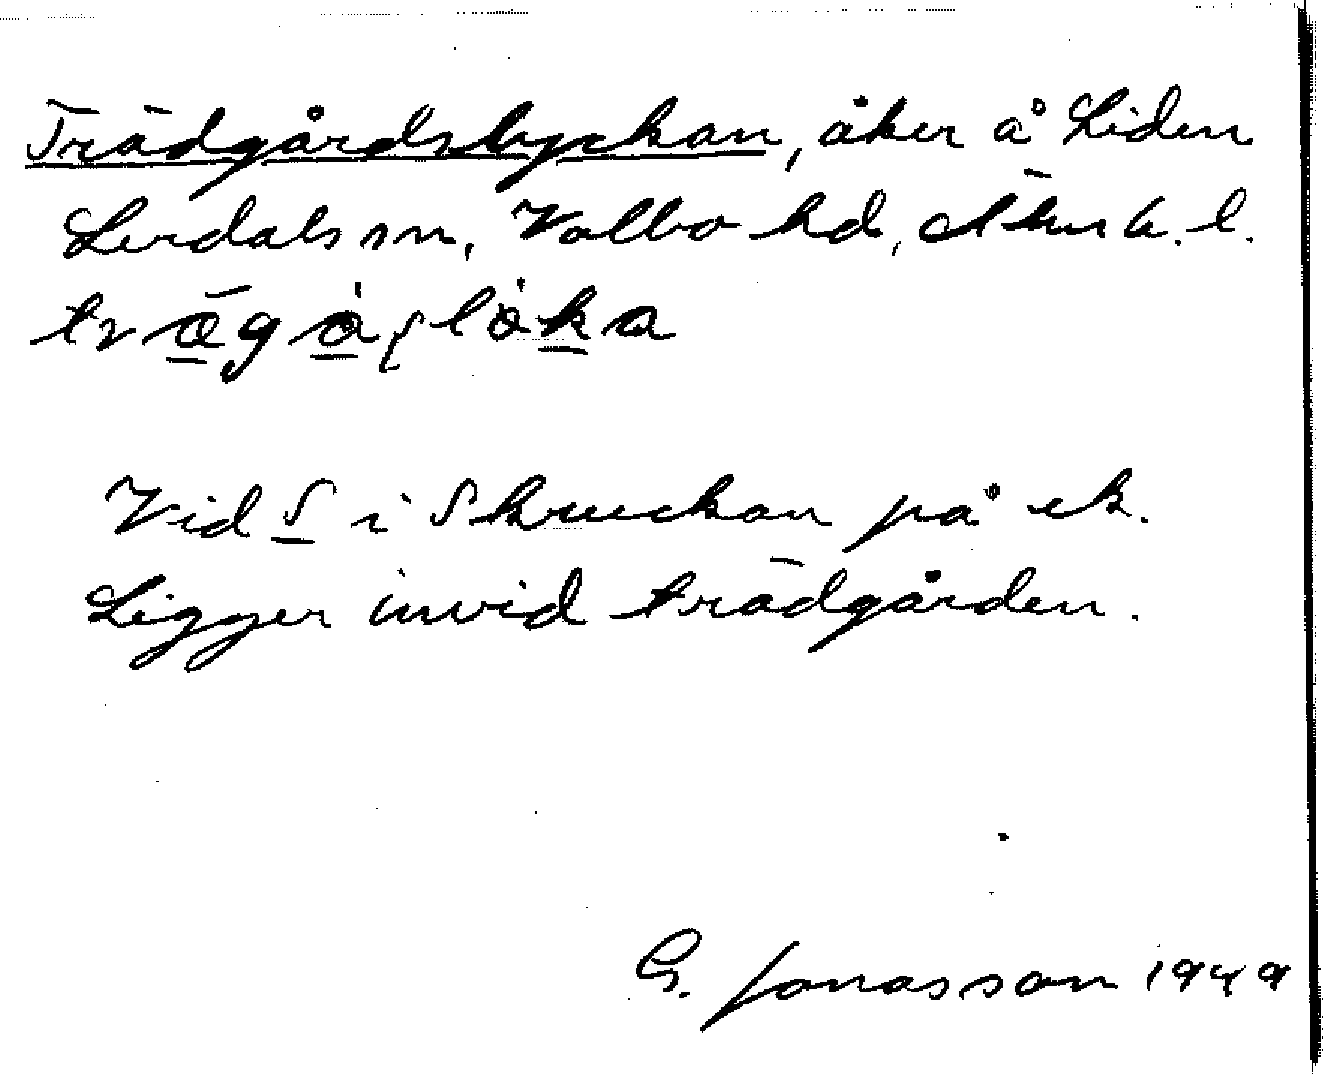 Trädgårdslyckan, åker å Liden
Lerdals sn, Valbo hd, Älvsb. l.
Vid S i Skruckan på ek.
Ligger invid trädgården.
G. Jonasson 1949